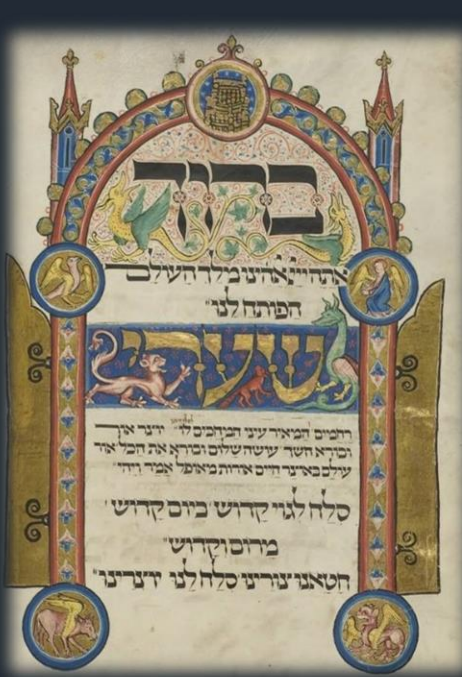 ברוך
אתה אלהינו מלך העולם
הפותח לנו
שערי
רחמים המאיר עיני המחכים יוצר אור
ובורא חשך עושה שלום ובורא את הכל אור
עולם באוצר חיים אורות מאופל אמר ויהי
סלח לגוי קדוש ביום קדוש
מרום וקדוש
חטאנו צורינו סלח לנו יוצרינו